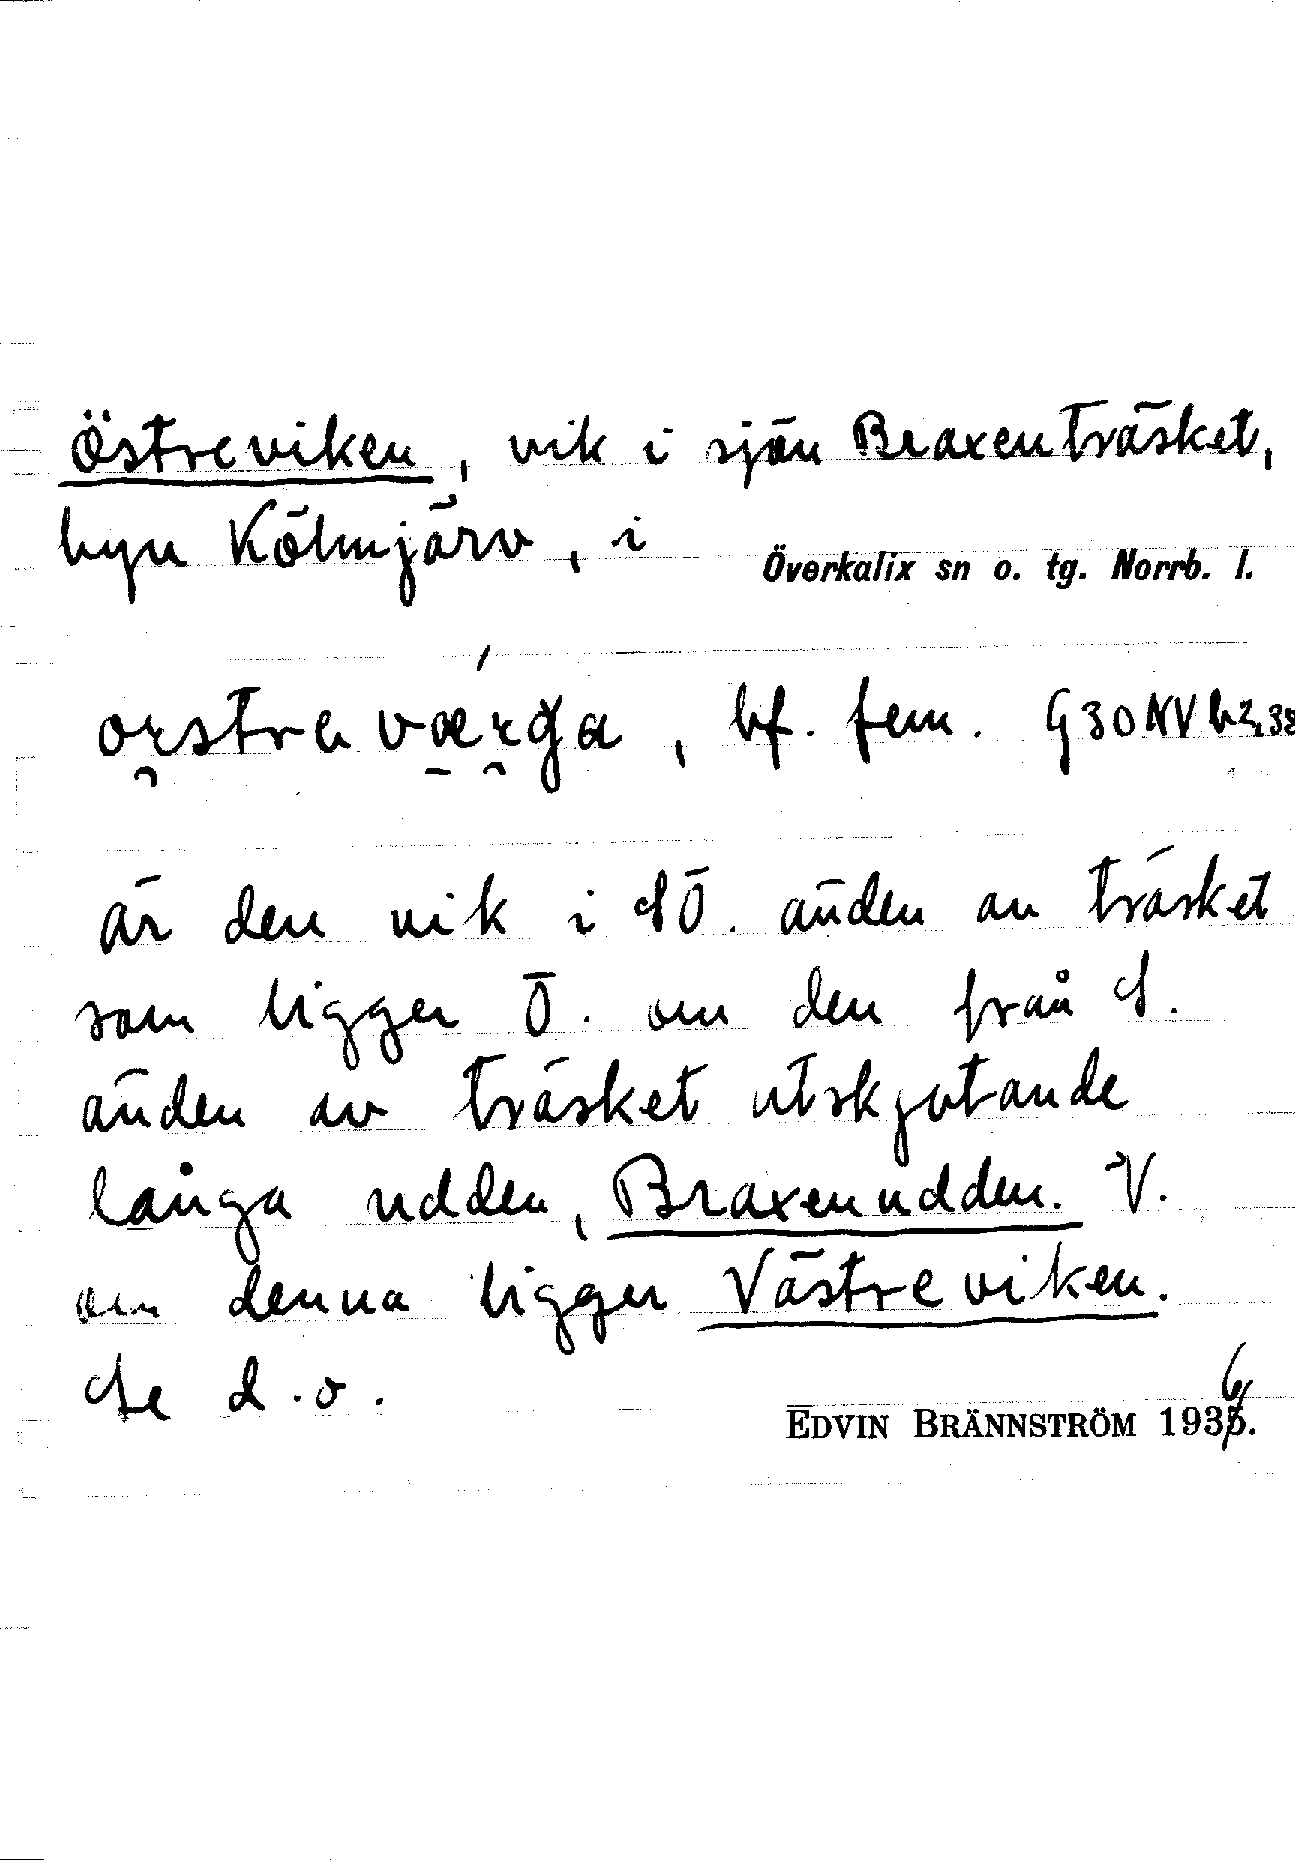 Östreviken, vik i sjön Braxenträsket,
byn Kölmjärv, i Överkalix sn o. tg. Norrb. l.
bf. fem. G30NV b2,38
är den vik i SÖ. änden av träsket
som ligger Ö. om den från S.
änden av träsket utskjutande
långa udden, Braxenudden. V.
om denna ligger Västreviken.
Se d.o.
EDVIN BRÄNNSTRÖM 1936.